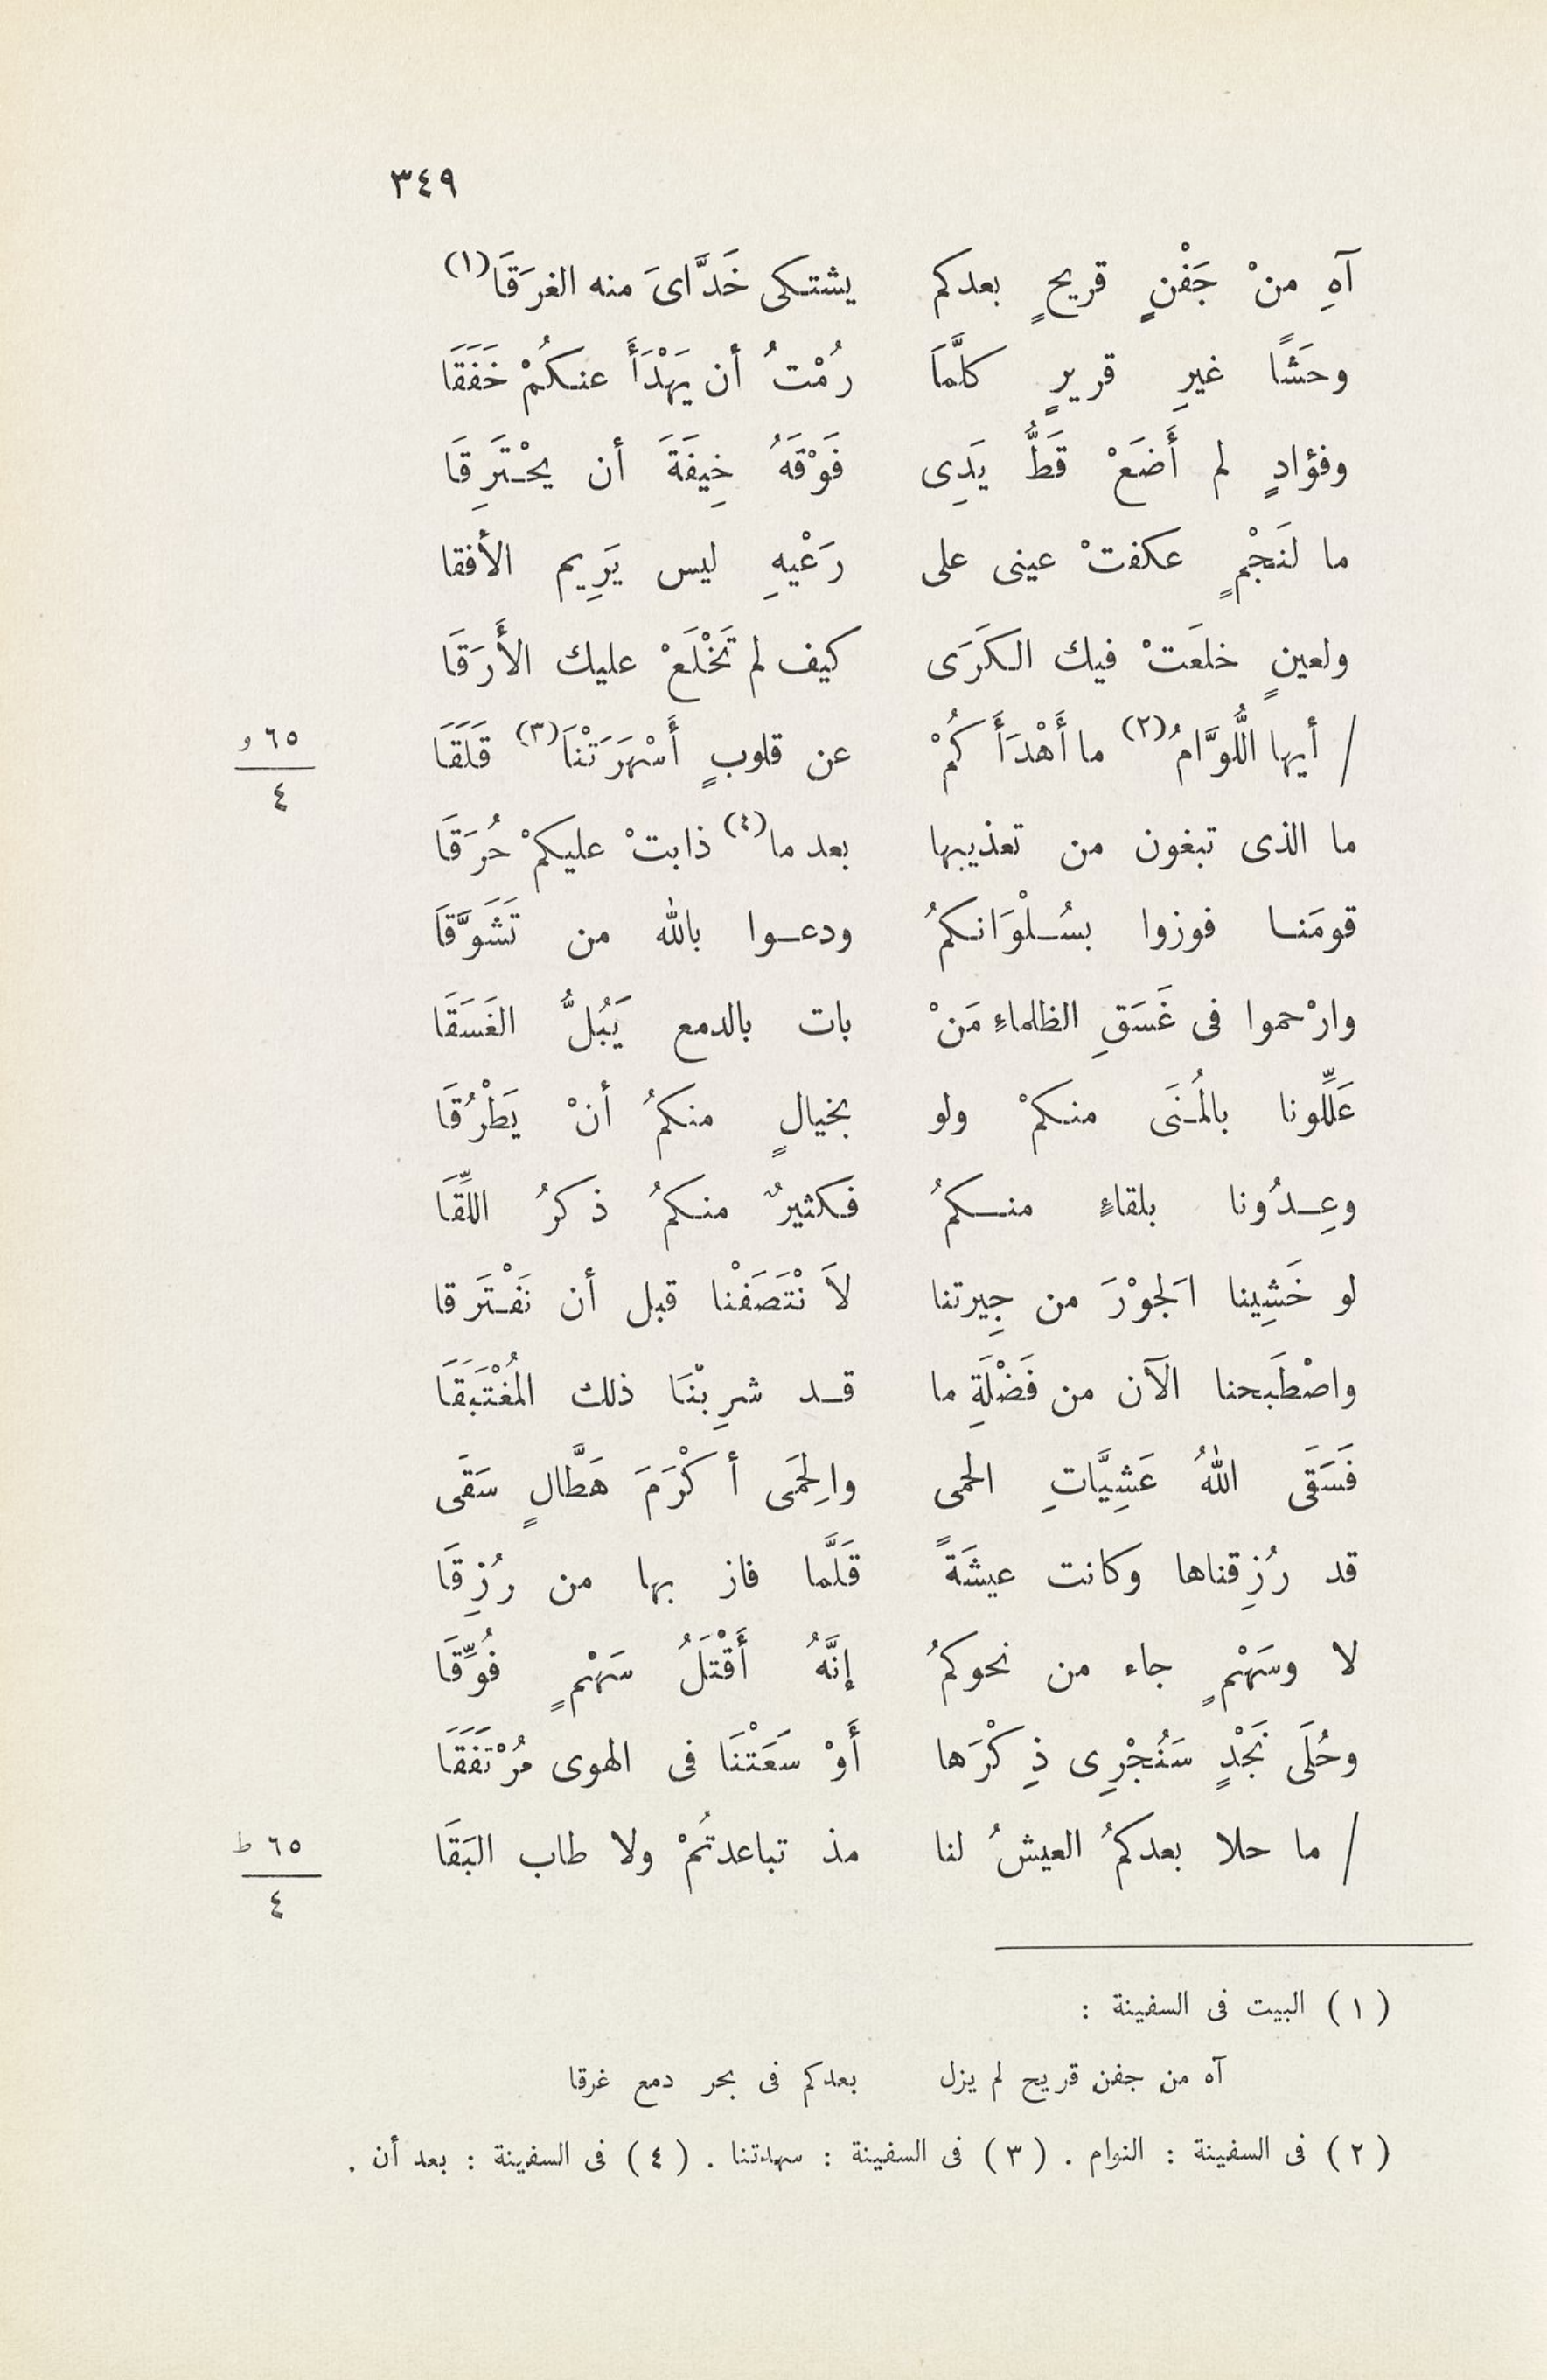 ٣٤٩
آهِ منْ جَفْنٍ قريحٍ بعدكم يشتكى خَدَّاىَ منه الغرَقَا(١)
وحَشًا غيرِ قريرٍ كلَّمَا رُمْتُ أن يَهْدَأَ عنكُمْ خَفَقَا
وفؤادٍ لم أَضَعْ قَطُّ يَدِى فَوْقَهُ خِيفَةَ أن يحْتَرِقَا
ما لنَجْمٍ عكفتْ عينى على رَعْيهِ ليس يَرِيم الأفقا
ولعينٍ خلعَتْ فيك الكَرَى كيف لم تَخْلَعْ عليك الأَرَقَا
/ أيها اللُّوَّامُ(٢) ما أَهْدَأَكُمْ عن قلوبٍ أَسْهَرَتْنَا(٣) قَلَقَا
٦٥ و
٤
ما الذى تبغون من تعذيبها بعد ما(٤) ذابتْ عليكمْ حُرَقَا
قومَنا فوزوا بسُلْوَانكمُ ودعوا بالله من تَشَوَّقَا
وارْحموا فى غَسَقِ الظلماءِ مَنْ بات بالدمع يَبُلُّ الغَسَقَا
عَلِّلُونا بالمُنَى منكمْ ولو بخيالٍ منكمُ أنْ يَطْرُقَا
وعِدُونا بلقاءٍ منكمُ فكثيرٌ منكمُ ذكرُ اللِّقَا
لو خَشِينا الَجوْرَ من جِيرتنا لاَنْتَصَفْنا قبل أن نَفْتَرقا
واصْطَبحنا الآن من فَضْلَةِ ما قد شرِبْنَا ذلك المُغْتَبَقَا
فَسَقَى اللهُ عَشِيَّاتِ الحمى والِحمَى أكْرَمَ هَطَّالٍ سَقَى
قد رُزِقناها وكانت عيشَةً قَلَّما فاز بها من رُزِقَا
لا وسَهْمٍ جاء من نحوكمُ إنَّهُ أَقْتَلُ سَهْمٍ فُوِّقَا
وحُلَى نَجْدٍ سَنُجْرِى ذِكْرَها أَوْ سَعَتْنَا فى الهوى مُرْتَفَقَا
/ ما حلا بعدكمُ العيشُ لنا مذ تباعدتُمْ ولا طاب البَقَا
٦٥ ط
٤
(١) البيت فى السفينة :
آه من جفن قريح لم يزل بعدكم فى بحر دمع غرقا
(٢) فى السفينة : النوام . (٣) فى السفينة : سهدتنا . (٤) فى السفينة : بعد أن .